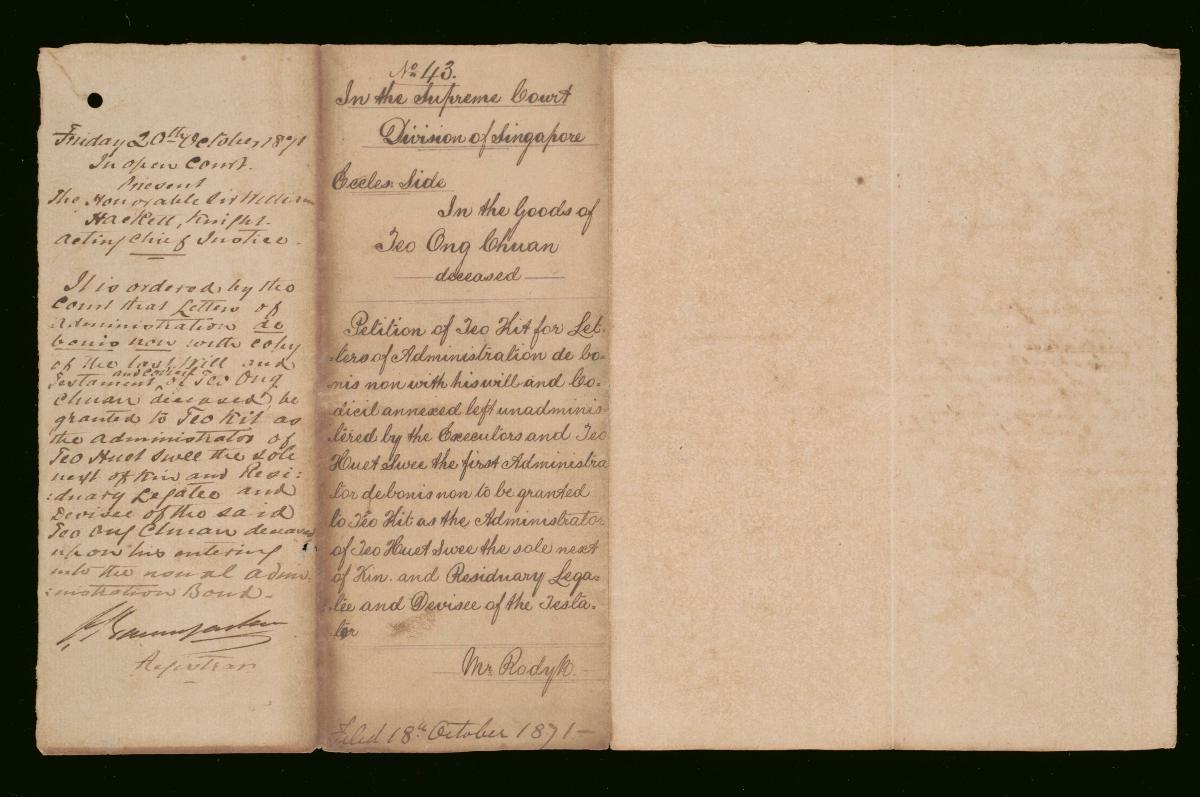 Friday 20th October 1871
In open Court.
Present
The Honorable Sir William
Hackett, Knight.
Acting Chief Justice.
It is ordered by the
Court that Letters of
Administration de
bonis non with copy
of the last Will and
and Codicil
Testament of Teo Ong
Chuan deceased, be
granted to Teo Kit as
the Administrator of
Teo Huet Swee the sole
next of Kin and Resi:
:duary Legatee and
Devisee of the said
Teo Ong Chuan deceased
upon his entering
into the usual Admi
:nistration Bond.
Registrar
No 43.
In the Supreme Court
Division of Singapore
Eccles: Side
In the Goods of
Teo Ong Chuan
deceased
Petition of Teo Kit for Let-
-ters of Administration de bo-
nis non with his will and Co-
dicil annexed left unadminis-
tered by the Executors and Teo
Huet Swee the first Administra
tor de bonis non to be granted
to Teo Kit as the Administrator
of Teo Huet Swee the sole next
of Kin. and Residuary Lega-
tee and Devisee of the Testa-
tor
Mr. Rodyk.
Filed 18th October 1871—